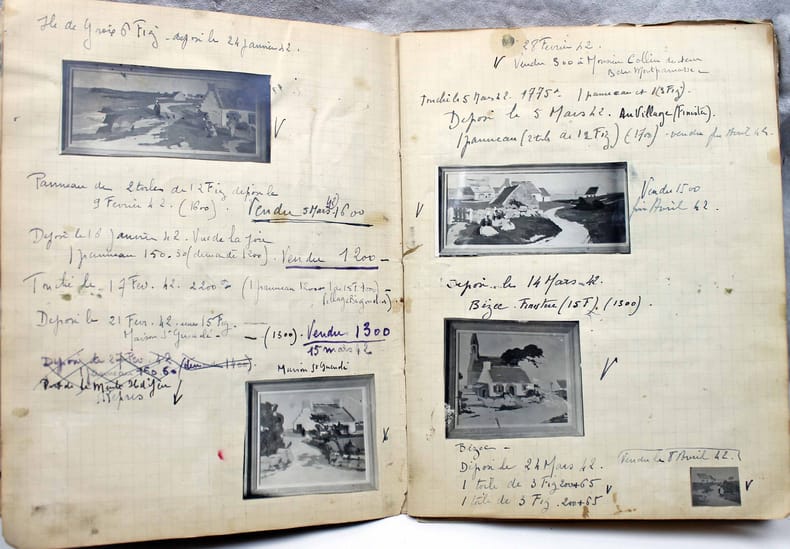 Ile de Groix 6 Fig - déposé le 24 janvier 42.
Panneau de 2 toiles de 12 Fig déposé le
9 Février 42. (1600). Vendu 5 Mars 42 1600
Déposé le 16 Janvier 42. Vue de la
1 panneau 150.50 (demandé 1200). Vendu 1200 -
Touché le 17 Fev. 42. 2200 (1 panneau
Déposé le 21 Fev. 42. une 15 Fig.
Maison St Guénolé - (1300). Vendu 1300
15 mars 42
Déposé le 42
150.50
Maison St Guénolé
28 Février 42.
Vendu 300 à Monsieur Collin
Montparnasse -
Touché le 5 Mars 42. 1775 1 panneau et 1 (3 Fig).
Déposé le 5 Mars 42. Au Village (Finistère)
1 panneau (2 toiles de 12 Fig) (1700) - vendu fin Avril 42.
Vendu 1500
fin Avril 42.
Déposé le 14 Mars 42
Bézec (15 F). (1300).
Bézec -
Déposé le 24 Mars 42.
1 toile de 3 Fig 200+65
1 toile de 3 Fig. 200+65
Vendu le 8 Avril 42.